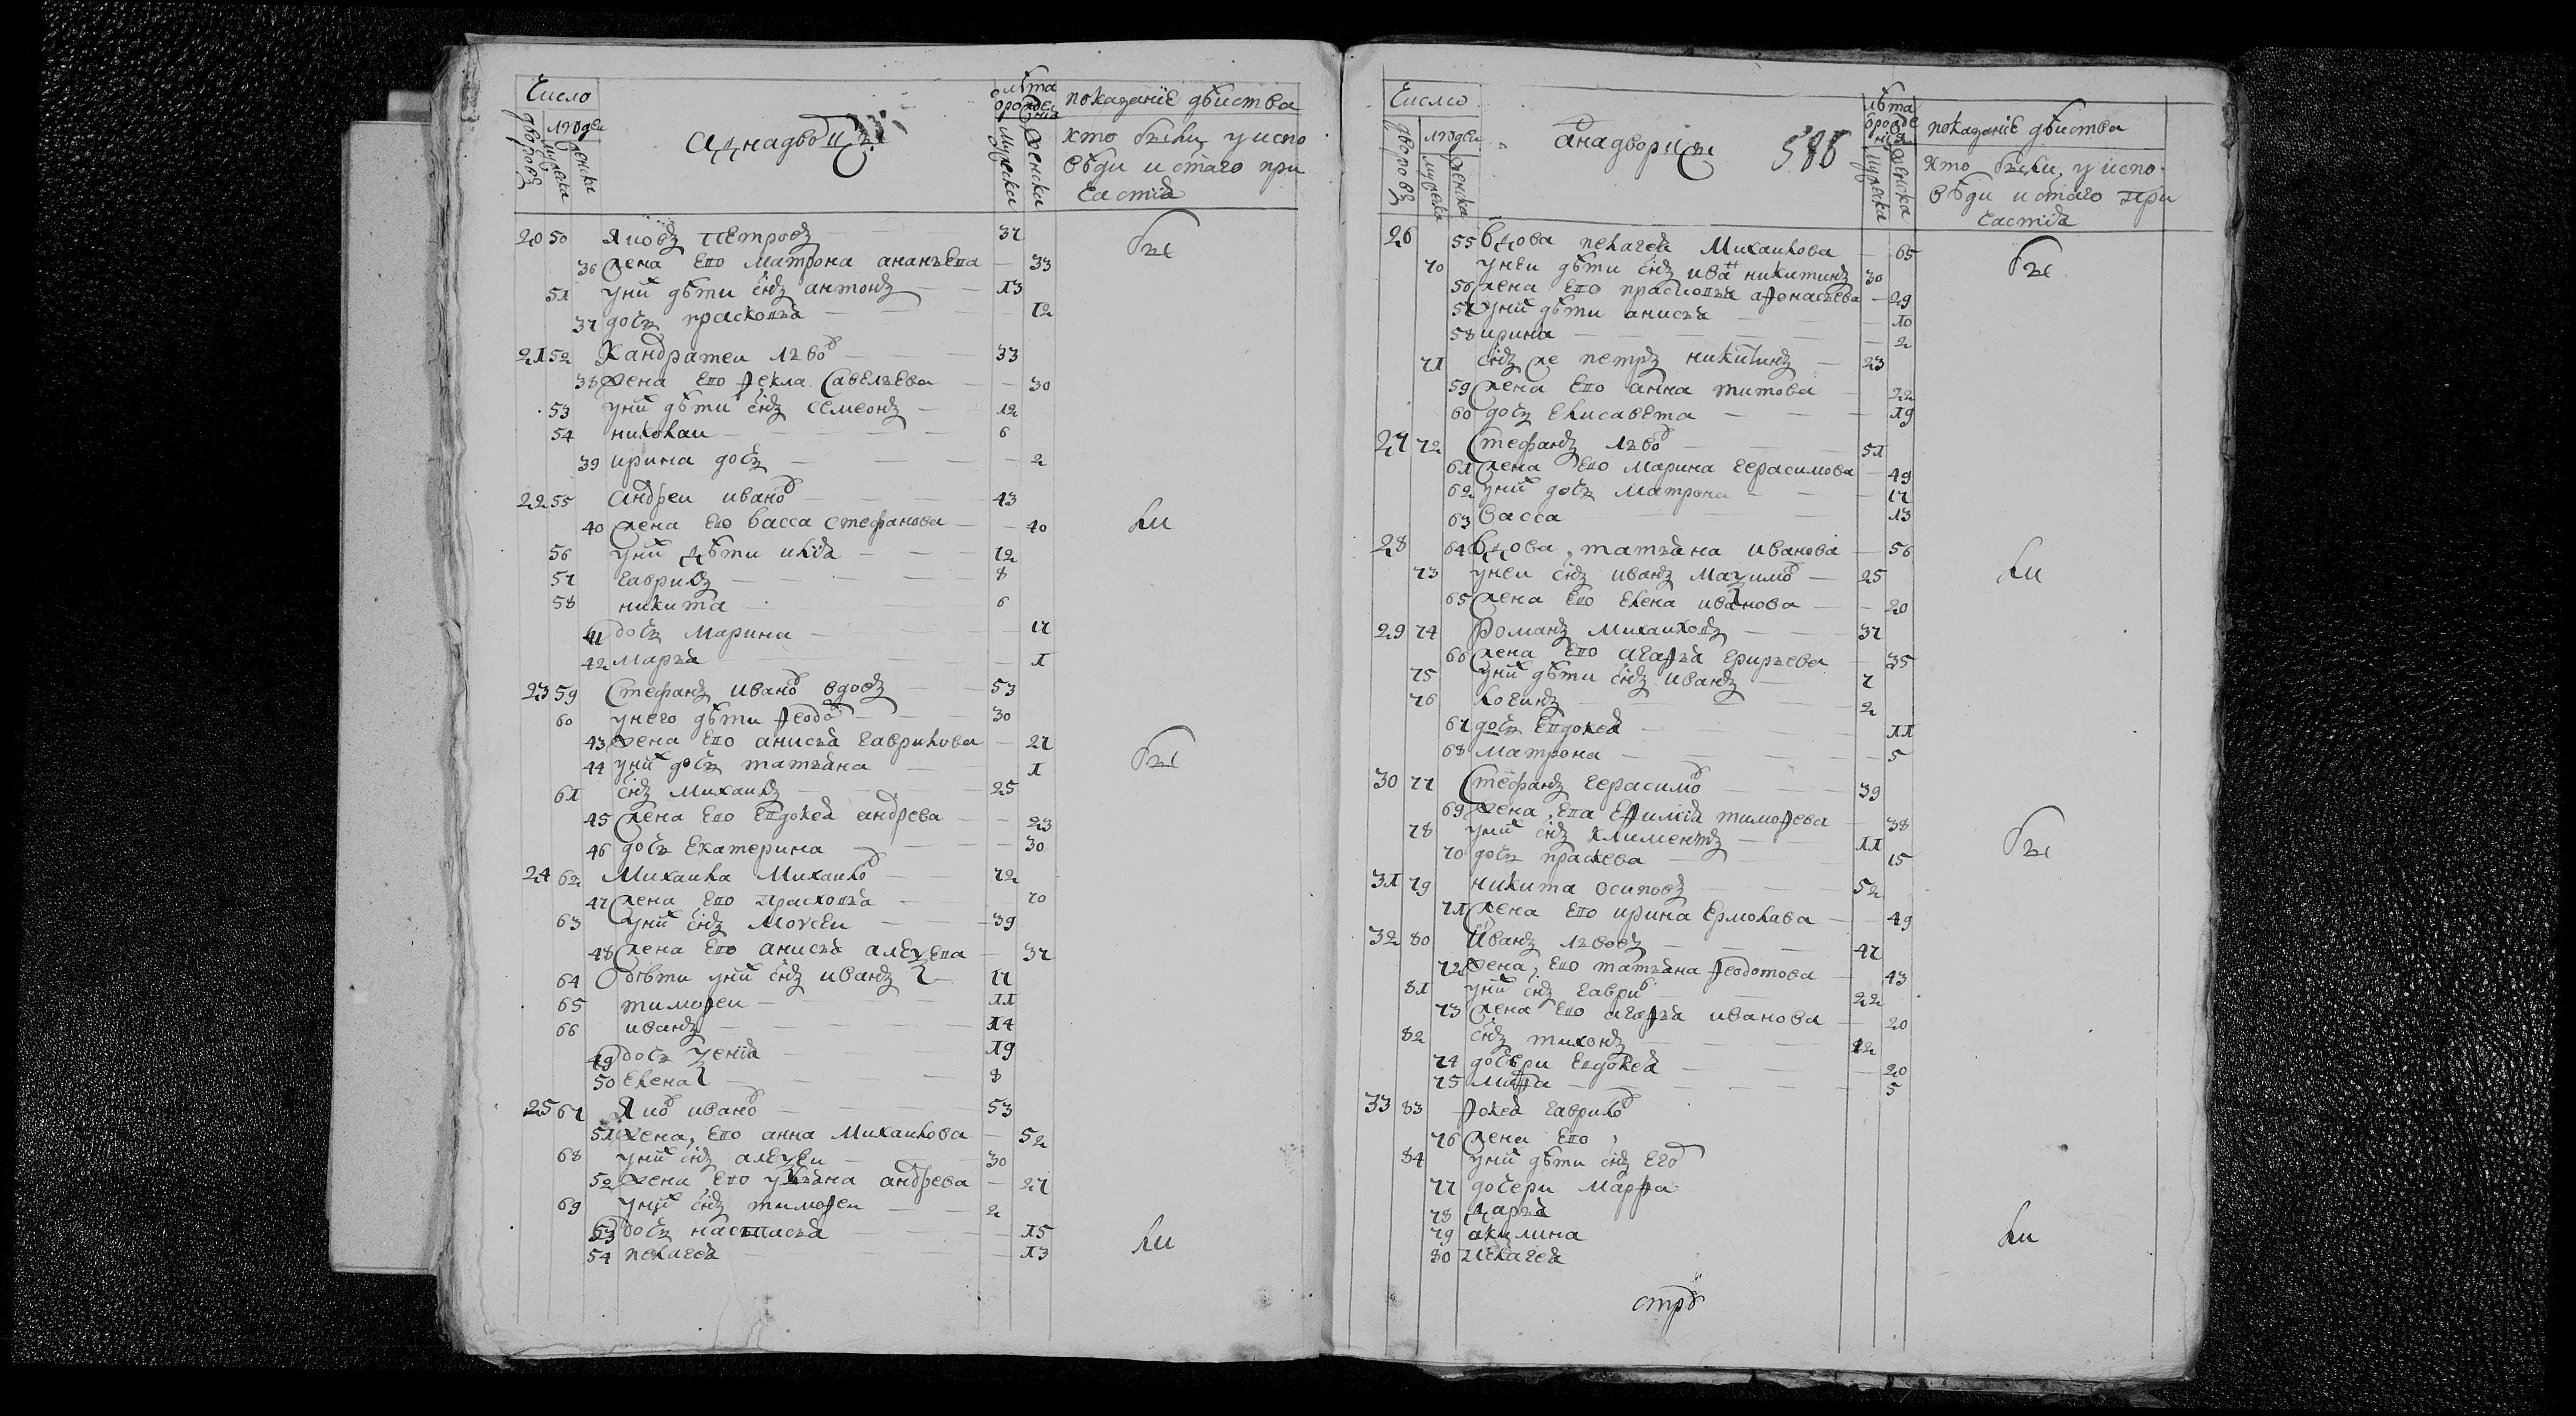 Число
дворовъ
людеи
мужска
женска
аднадворцы
лѣта
о рожде
нія
мужска
женска
показаніе дѣиства
хто были у испо
вѣди и стаго при
частіа
20 50 Яковъ Петровъ 37
36 жена ево матрона ананьева 33
51 уних дѣти снъ антонъ 13
37 дочь прасковьа 12
21 52 Кандратеи Лвов 33
38 жена ево Ѳекла Савельева 30
53 уних дѣти снъ семеонъ 12
54 николаи 6
39 ирина дочь 2
22 55 андреи иванов 43
40 жена ево васса стефанова 40
56 уних дѣти иліа 12
57 гаврилъ 8
58 никита 6
41 дочь марина 17
42 марьа 1
23 59 Стефанъ иванов вдовъ 53
60 унего дѣти Ѳеодор 30
43 жена ево анисьа гаврилова 27
44 уних дочь татьана 1
61 снъ михаилъ 25
45 жена ево евдокеа андрева 23
46 дочь екатерина 30
24 62 Михаила Михаилов 72
47 жена ево прасковьа 70
63 уних снъ Моѵсеи 39
48 жена ево анисьа алеѯева 37
64 дѣти уних снъ иванъ 17
65 тимоѳеи 11
66 иванъ 14
49 дочь ѯеніа 19
50 елена 8
25 67 Яков иванов 53
51 жена, ево анна Михаилова 52
68 уних снъ алеѯеи 30
52 жена ево ульана андрева 27
69 уних снъ тимоѳеи 2
53 дочь настасьа 15
54 пелагеа 13
бы
ли
бы
ли
Число
дворовъ
людеи
мужска
женска
анадворцы 586
лѣта
о рожде
нія
мужска
женска
показаніе дѣиства
хто были, у испо
вѣди и стаго при
частіа
26 55 вдова пелагеа Михаилова 65
70 унеи дѣти снъ иван никитинъ 30
56 жена ево прасковьа аѳонасьева 29
57 уних дѣти анисьа 10
58 ирина 2
71 снъ же петръ никитинъ 23
59 жена ево анна титова 22
60 дочь елисавета 19
27 72 Стефанъ Лвов 51
61 жена ево марина герасимова 49
62 уних дочь матрона 17
63 васса 13
28 64 вдова, татьана иванова 56
73 унеи снъ иванъ Маѯимов 25
65 жена ево елена иванова 20
29 74 Романъ михаиловъ 37
66 жена ево агаѳьа григрьева 35
75 уних дѣти снъ иванъ 7
76 логинъ 2
67 дочь евдокеа 11
68 матрона 5
30 77 Стефанъ герасимов 39
69 жена, ева еѳиміа тимоѳева 38
78 уних снъ климентъ 11
70 дочь праскева 15
31 79 никита осиповъ 52
71 жена ево ирина ермолава 49
32 80 иванъ лвовъ 47
72 жена, ево татьана Ѳеодотова 43
81 уних снъ гаврил 22
73 жена ево агаѳьа иванова 20
82 снъ тихонъ 12
74 дочери евдокеа 20
75 марѳа 5
33 83 Ѳокеа гаврилов
76 жена ево,
84 уних дѣти снъ его
77 дочери марѳа
78 дарьа
79 акилина
80 пелагеа
бы
ли
бы
ли